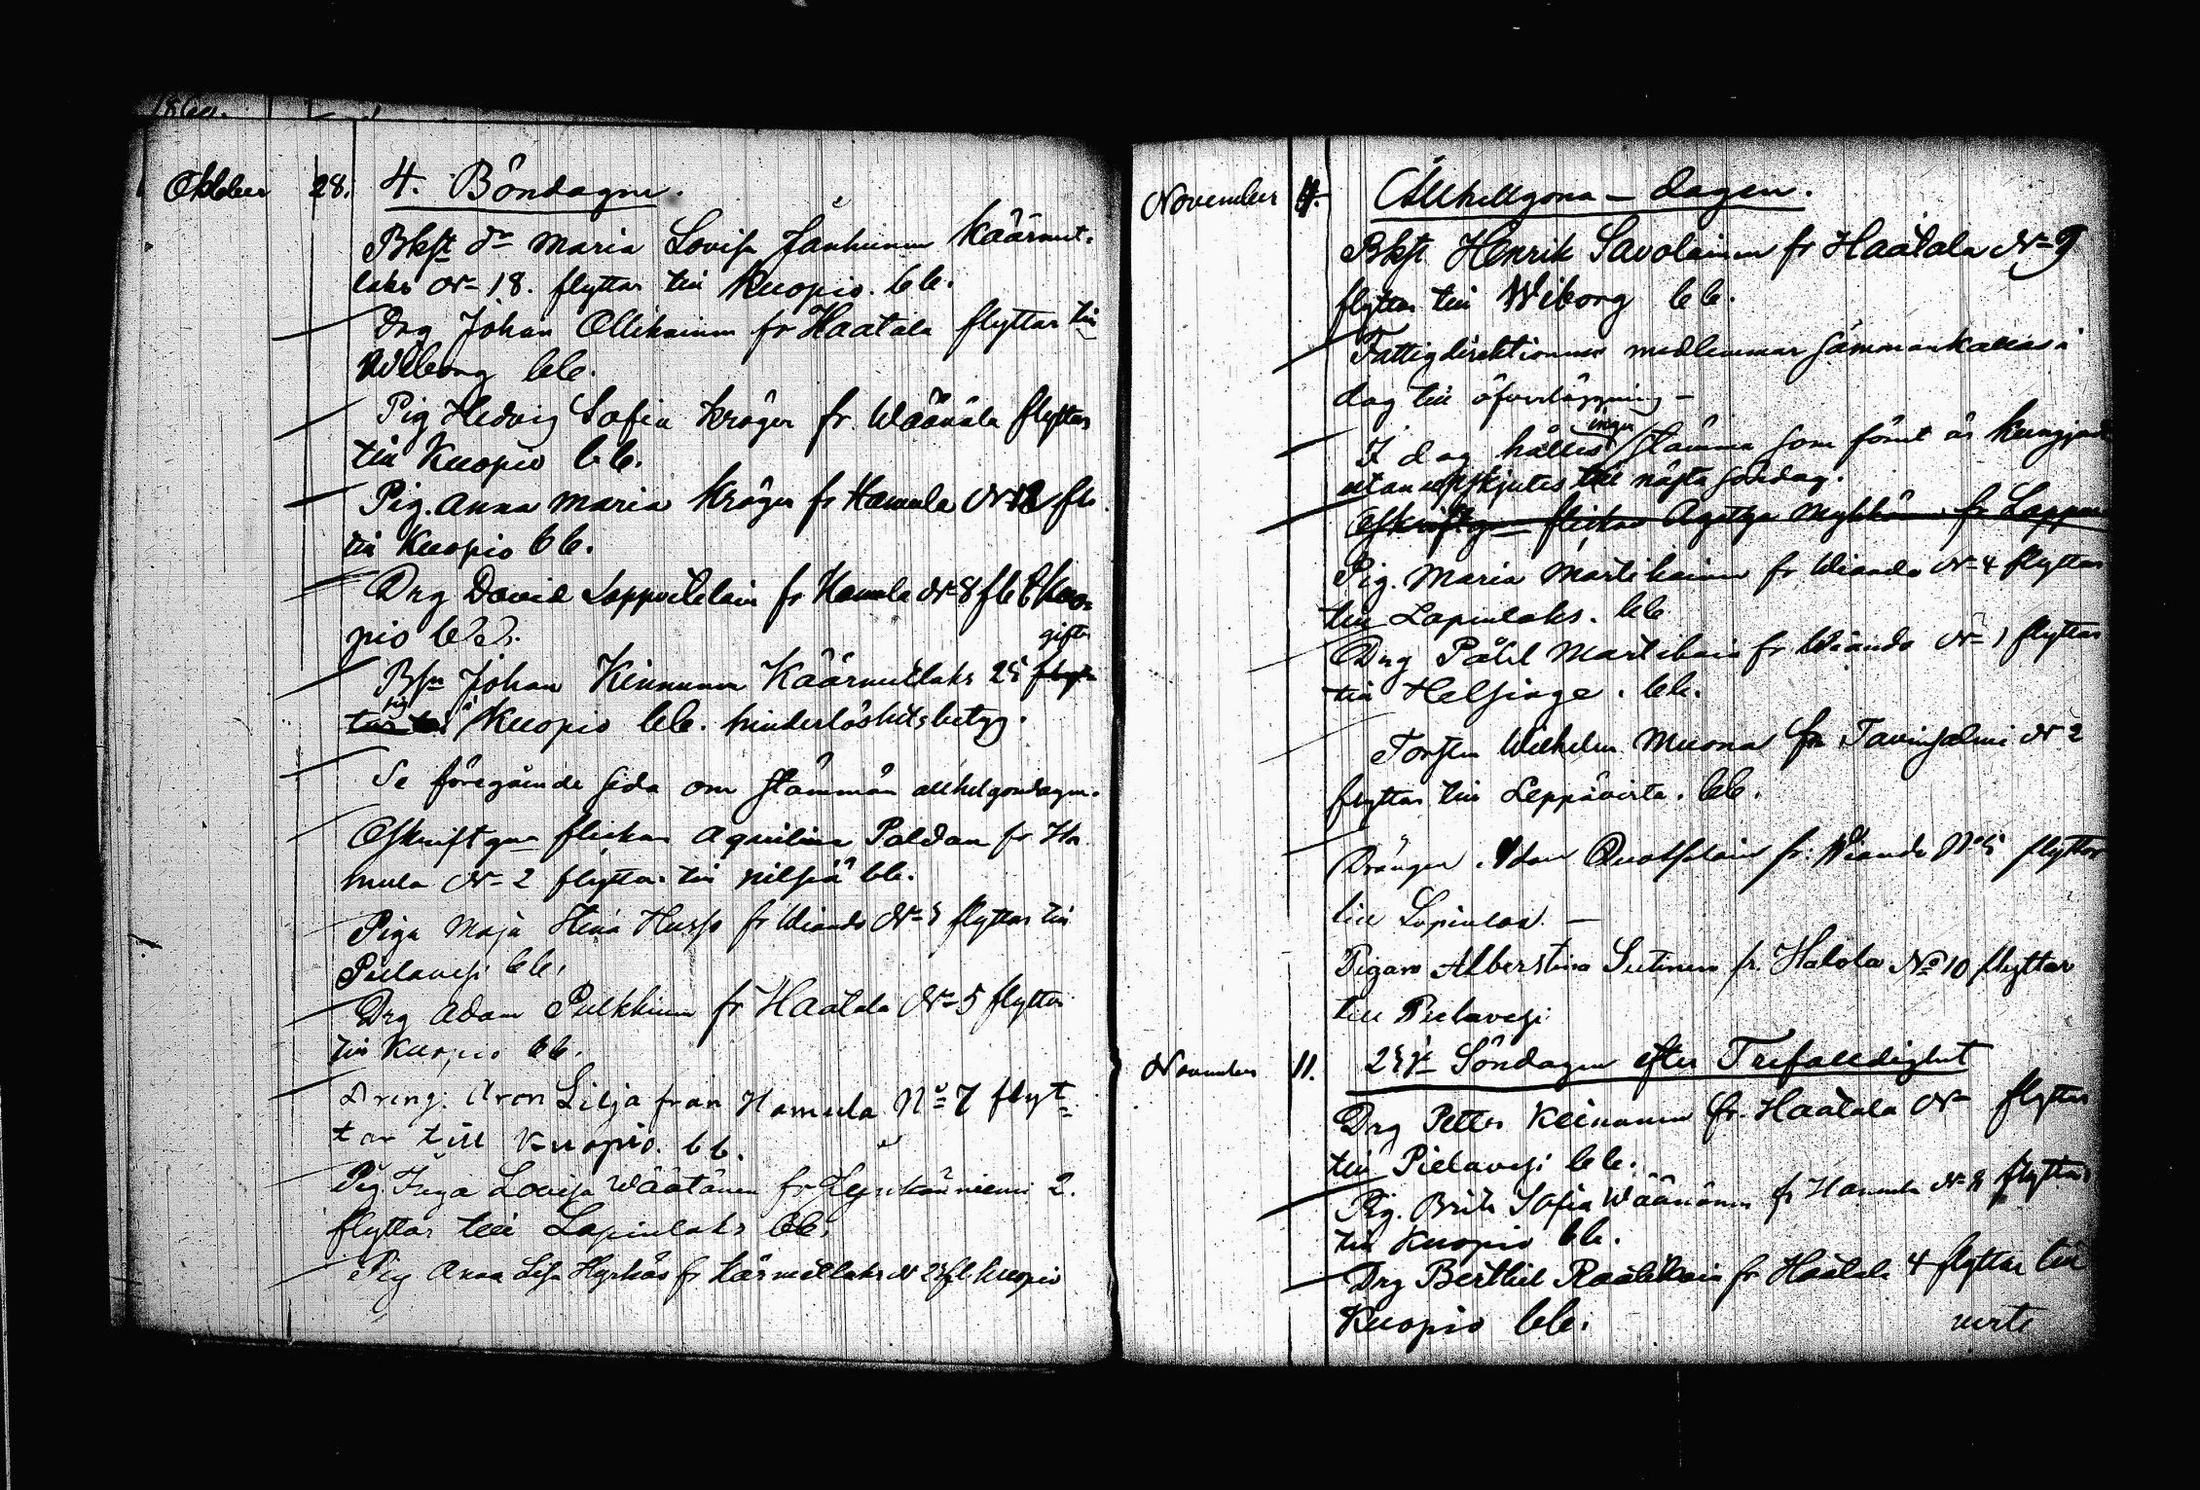 1860.
Oktober 28. 4. Böndagen.
Bkst dr Maria Lovisa Jänhunen Käärmet-
laks N 18. flyttar till Kuopio. bb.
Drg Johan Ollikainen fr Haatala flyttar till
Wiborg bb.
Pig Hedvig Sofia Kröger fr. Wäänälä flyttar
till Kuopio bb.
Pig. Anna Maria Kröger fr Hamula N 12 fl
till Kuopio bb.
Drg David fr Hamula N 8 fl t Kuo-
pio bb.
gifta
Bsn Johan Kinnunen Käärmetlaks 25
sig i Kuopio bb. hinderlöshetsbetyg.
Se föregående sida om stämman allhelgondagen.
flickan Aquilina Paldan fr Ha
mula N 2 flyttar till Nilsiä bb.
Piga Maja Stina Husso fr Wiando N flyttar till
Pielavesi bb.
Drg Adam Pulkkinen fr Haatala N 5 flyttar
till Kuopio bb.
Dreng. Aron Lilja från Hamula No 7 flyt=
tar till Kuopio. bb.
Pig. Inga Lovisa Wäätänen fr 2.
flyttar till Lapinlaks bb.
Pig Anna Lisa fr Kärmetlaks N 23 fl. Kuopio
November 4. Allhelgona-dagen.
Bkst Henrik Savolainen fr Haatala N 9
flyttar till Wiborg bb.
Fattigdirektionens medlemmar sammankallas i
dag till öfverläggning –
I dag hålles inga stämma som förut är kungjord
utan uppskjutes till nästa söndag.
flickan Agatha Mykkänen fr Lappin
Pig. Maria Martikainen fr Wiando N 4 flyttar
till Lapinlaks. bb
Drg Påhl Martikain fr Wiando N 1 flyttar
till Helsinge. bb.
Torsten Wilhelm Muona fr Tavinsalmi N 2
flyttar till Leppävirta. bb.
Drängen Adam fr. Wiando No 5 flyttar
till Lapinlax. –
Pigan Albertina Sutinen fr. Halola No 10 flyttar
till Pielavesi
November 11. 23de Söndagen efter Trefalldighet
Drg Petter Keinanen fr. Haatala N flyttar
till Pielavesi bb.
Pig. Brita Sofia Wäänänen fr Hamula N 8 flyttar
till Kuopio bb.
Drg Berthil Raatikain fr Haatala 4 flyttar till
Kuopio bb.
verte